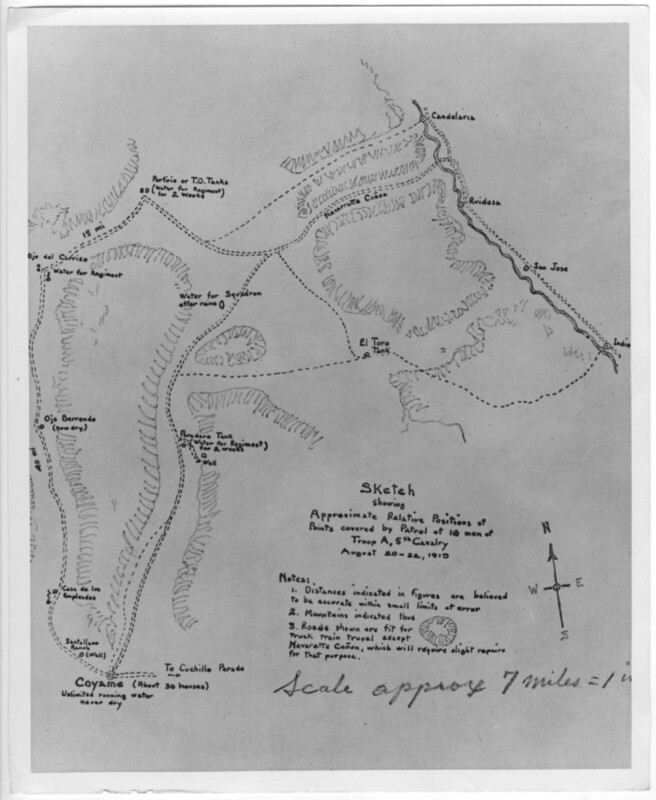 Candelaria
Porfirio or T.O. Tanks
(Water for Regiment)
for 2 Weeks
Navarette Cañon
Ruidosa
15 mi
Ojo del Carrizo
Water for Regiment
San Jose
Water for Squadron
after rains
Indio
El Toro
Tank
Ojo Berrendo
(now dry)
Paradero Tank
(Water for Regiment)
for 2 weeks
Well
40 mi
Sketch
showing
Approximate Relative Positions of
Points covered by Patrol of 18 men of
Troop A, 5th Cavalry
August 20-22, 1919
N
W E
S
Notes:
1. Distances indicated in figures are believed
to be accurate within small limits of error
2. Mountains indicated thus
3. Roads shown are fit for
truck train travel except
Navarette Cañon, which will require slight repairs
for that purpose.
Casa de los
Empleados
Santellano
Ranch
(Well)
To Cuchillo Parado
Coyame (About 30 houses)
Unlimited running water
never dry
Scale approx 7 miles = 1 in